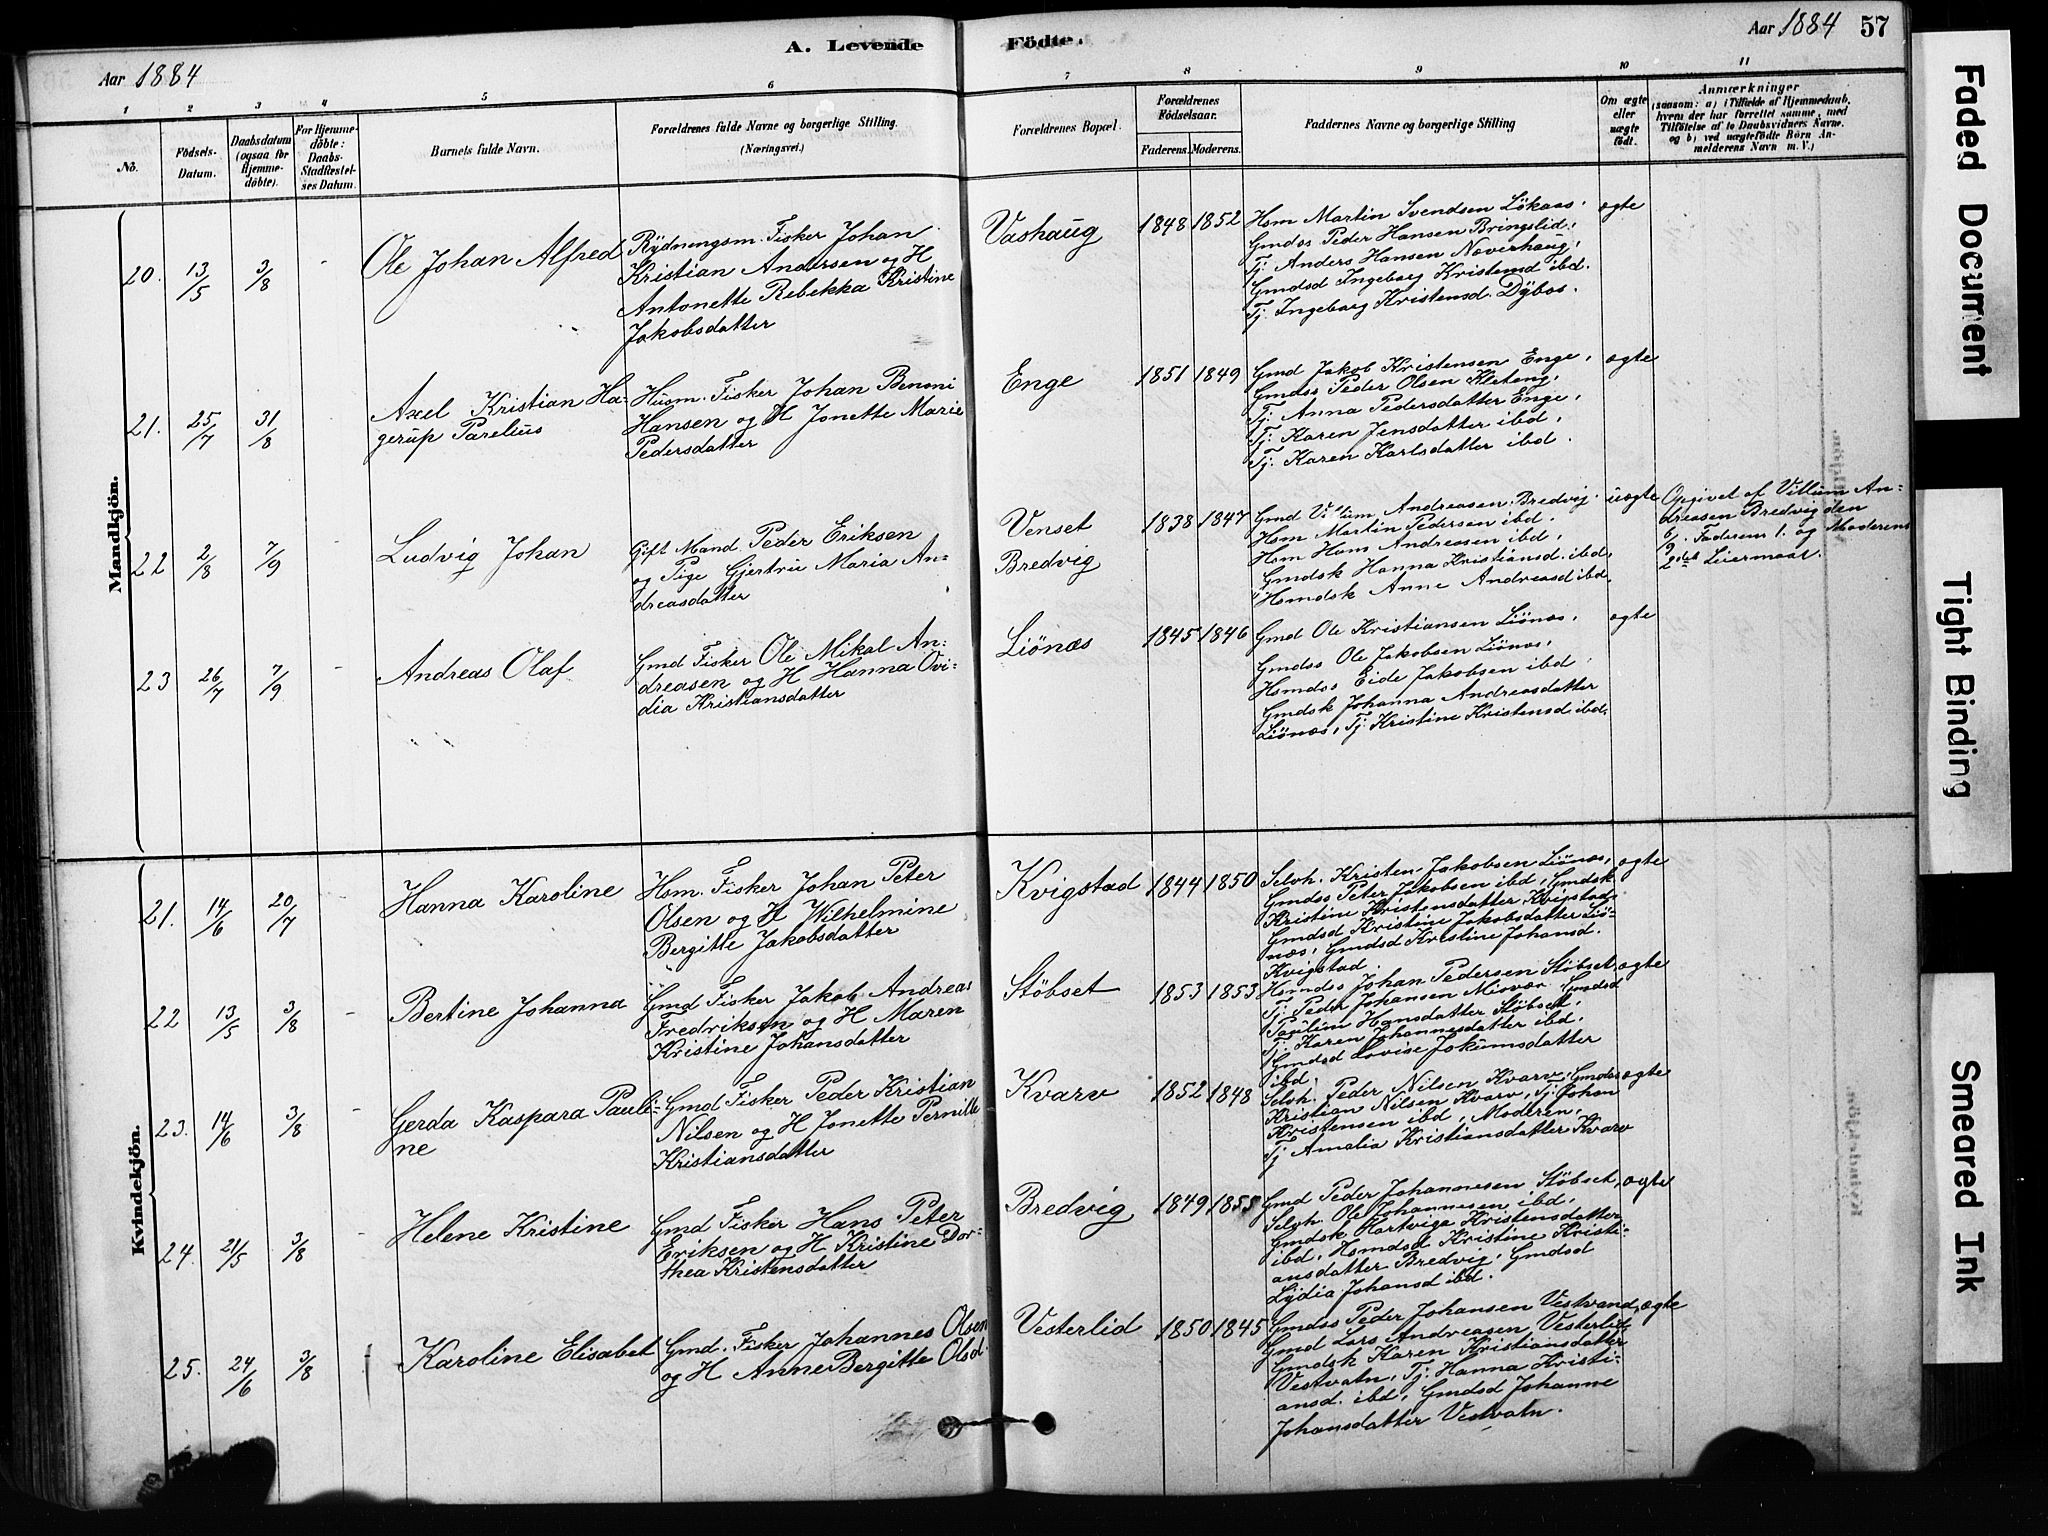 A. Levende
Födte.
Aar 1884
Aar 1884
57
1
2
3
4
5
6
7
8
9
10
11
No.
Födsels-
Datum.
Daabsdatum
(ogsaa for
Hjemme-
döbte).
For Hjemme-
döbte:
Daabs-
Stadfæstel-
ses Datum.
Barnets fulde Navn.
Forældrenes fulde Navne og borgerlige Stilling.
(Næringsvei.)
Forældrenes Bopæl.
Forældrenes
Födselsaar.
Faderens.
Moderens.
Faddernes Navne og borgerlige Stilling
Om ægte
eller
uægte
födt.
Anmærkninger
(saasom: a) i Tilfælde af Hjemmedaab,
hvem der har forrettet samme, med
Tilföielse af to Daabsvidners Navne,
og b) ved uægtefödte Börn An-
melderens Navn m. V.)
Mandkjön.
20.
13/5
3/8
-
Ole Johan Alfred
Rydningsm. Fisker Johan
Kristian Andersen og H
Antonette Rebekka Kristine
Jakobsdatter
Vashaug
1848
1852
Hsm Martin Svendsen Lökaas,
Gmdss Peder Hansen Bringslid,
Tj. Anders Hansen Noverhaug,
Gmdsd Ingeborg Kristensd ibd.
Tj. Ingeborg Kristensd. Dybos.
ægte
21.
25/7
31/8
-
Axel Kristian Ha-
gerup Parelius
Husm. Fisker Johan Benoni
Hansen og H Jonette Marie
Pedersdatter
Enge
1851
1849
Gmd Jakob Kristensen Enge,
Gmdss Peder Olsen Kletang,
Tj. Anna Pedersdatter Enge,
Tj. Karen Jensdatter ibd,
Tj. Karen Karlsdatter ibd.
ægte
22
2/8
7/9
-
Ludvig Johan
Gift Mand Peder Eriksen
og Pige Gjertru Maria An-
dreasdatter
Venset
Bredvig
1838
1847
Gmd Villum Andreasen Bredvig.
Hsm Martin Pedersen ibd,
Hsm Andreasen ibd,
Gmdsk Hanna Kristiansd. ibd,
Hsmdsk Anne Andreasd ibd.
uægte
Opgivet af Villum An-
dreasen Bredvig den
Faderens 1. og Moderens
2det Leiermaal.
23
26/7
7/9
-
Andreas Olaf
Gmd Fisker Ole Mikal An-
dreasen og H Hanna Ovi-
dia Kristiansdatter
Liönæs
1845
1846
Gmd Ole Kristiansen Liönæs,
Gmdss Ole Jakobsen Liönæs,
Hsmdss Eide Jakobsen ibd,
Gmdsk Johanna Andreasdatter
Liönæs, Tj. Kristine Kristensd. ibd.
ægte
Kvindekjön.
21.
14/6
20/7
-
Hanna Karoline
Hsm. Fisker Johan Peter
Olsen og H Wilhelmine
Bergitte Jakobsdatter
Kvigstad
1844
1850
Selvh. Kristen Jakobsen Liönæs,
Gmdss Peter Jakobsen ibd, Gmdsk
Kristine Kristensdatter Kvigstad,
Gmdsd Kristine Jakobsdatter Liö-
næs, Gmdsd Kristine Johansd.
Kvigstad.
ægte
22
13/5
3/8
-
Bertine Johanna
Gmd Fisker Jakob Andreas
Fredriksen og H Maren
Kristine Johansdatter
Stöbset
1853
1853
Hsmdss Johan Pedersen Stöbset,
Tj. Peder Johansen Miovær Gmdsd
Hansdatter Stöbset,
Tj. Karen Johannesdatter ibd,
Gmdsd Lovise Jokumsdatter
ibd.
ægte
23.
14/6
3/8
-
Gerda Kaspara Pauli-
ne
Gmd Fisker Peder Kristian
Nilsen og H Jonette Pernille
Kristiansdatter
Kvarv
1852
1848
Selvh. Peder Nilsen Kvarv, Gmdss
Kristian Nilsen Kvarv, Tj. Johan
Kristensen ibd, Moderen,
Tj Amalia Kristiansdatter Kvarv
ægte
24.
21/5
3/8
-
Helene Kristine
Gmd Fisker Hans Peter
Eriksen og H Kristine Dor-
thea Kristensdatter
Bredvig
1849
1855
Gmd Peder Johannesen Stöbset,
Selvh. Ole Johannesen ibd,
Gmdsk Hartvige Kristensdatter
ibd, Hsmdsd Kristine Kristi-
ansdatter Bredvig, Gmdsd
Lydia Johansd ibd.
ægte
25.
24/6
3/8
Karoline Elisabet
Gmd. Fisker Johannes Olsen
og H Anne Bergitte Olsd.
Vesterlid
1850
1845
Gmdss Peder Johansen Vestvand,
Gmd Lars Andreasen Vesterlid,
Gmdsk Karen Kristiansdatter
Vestvatn, Tj. Hanna Kristi-
ansd. ibd, Gmdsd Johanne
Johansdatter Vestvatn.
ægte
Faded Document
Tight Binding
Smeared Ink